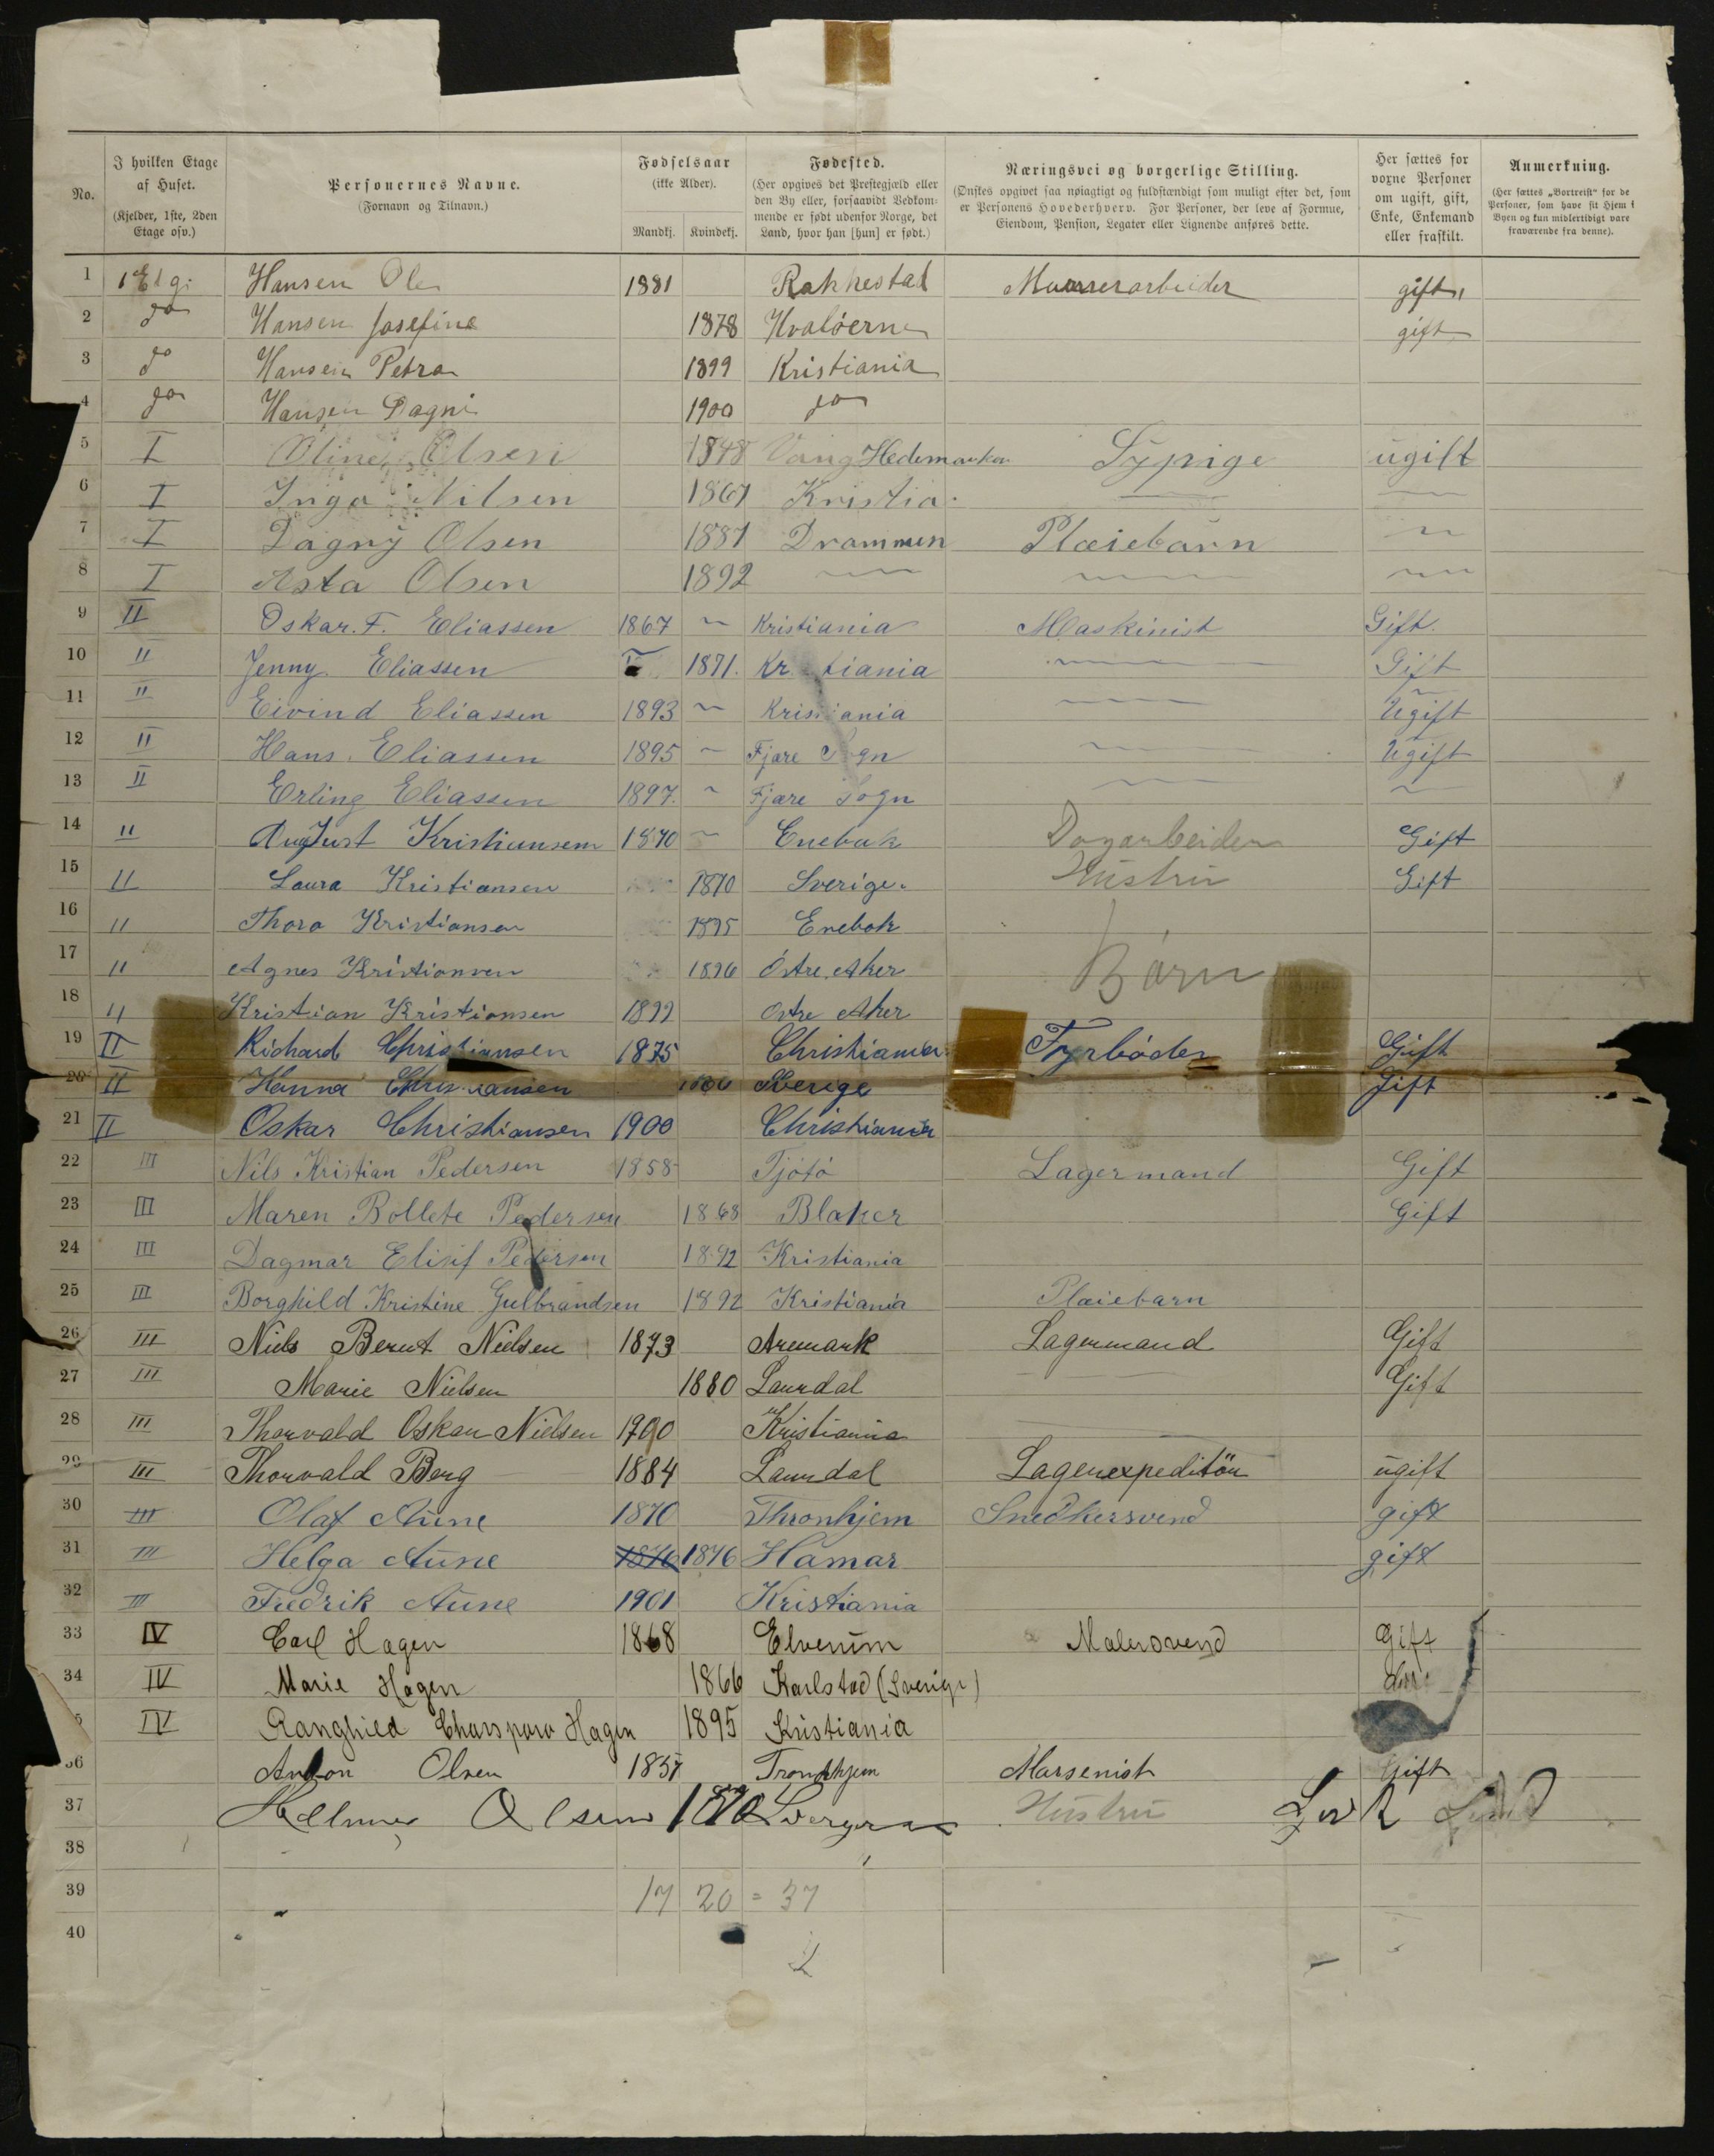 No.
I hvilken Etage af Huset. (Kjelder, 1ste, 2den Etage osv.)
Personernes Navne. (Fornavn og Tilnavn.)
Fødselsaar (ikke Alder). Mandkj. Kvindekj.
Fødested. (Her opgives det Prestegjæld eller den By eller, forsaavidt Vedkommende er født udenfor Norge, det Land, hvor han [hun] er født.)
Næringsvei og borgerlige Stilling. (Ønskes opgivet saa nøiagtigt og fuldstændigt som muligt efter det, som er Personens Hovederhverv. For Personer, der leve af Formue, Eiendom, Pension, Legater eller Lignende anføres dette.
Her sættes for voxne Personer om ugift, gift, Enke, Enkemand eller fraskilt.
Anmerkning. (Her sættes „Bortreist“ for de Personer, som have sit Hjem i Byen og kun midlertidigt vare fraværende fra denne).
1 1 Etg: Hansen Ole 1881 Rakkestad Murerarbeider gift
2 do Hansen Josefine 1878 Hvaløerne gift
3 do Hansen Petra 1899 Kristiania
4 do Hansen Dagni 1900 do
5 I Oline Olsen 1848 Vang Hedemarken Sypige ugift
6 I Inga Nilsen 1867 Kristia. — —
7 I Dagny Olsen 1887 Drammen Plæiebarn ~
8 I Asta Olsen 1892 ~ ~ ~
9 II Oskar. F. Eliassen 1867 ~ Kristiania Maskinist Gift.
10 II Jenny Eliassen 1871. Kristiania ~ Gift
11 II Eivind Eliassen 1893 ~ Kristiania ~ Ugift
12 II Hans. Eliassen 1895 ~ Fjære Sogn ~ Ugift
13 II Erling Eliassen 1897. ~ Fjære Sogn ~ ~
14 II August Kristiansem 1870 ~ Enebak Dagarbeider Gift
15 II Laura Kristiansen 1870 Sverige. Hustru Gift
16 II Thora Kristiansen 1895 Enebak
17 II Agnes Kristiansen 1896 Østre Aker Børn
18 II Kristian Kristiansen 1899 Østre Aker
19 II Richard Christiansen 1875 Christiania Fyrbøder Gift
20 II Hanna Christiansen Sverige Gift
21 II Oskar Christiansen 1900 Christiania
22 III Nils Kristian Pedersen 1858 Tjøtø Lagermand Gift
23 III Maren Bollete Pedersen 1868 Blaker Gift
24 III Dagmar Elisif Pedersen 1892 Kristiania
25 III Borghild Kristine Gulbrandsen 1892 Kristiania Plæiebarn
26 III Niels Bernt Nielsen 1873 Aremark Lagermand Gift
27 III Marie Nielsen 1880 Laurdal — Gift
28 III Thorvald Oskar Nielsen 1900 Kristiania
29 III Thorvald Berg 1884 Laurdal Lagerexpeditør ugift
30 III Olaf Aune 1870 Thronhjem Snedkersvend gift
31 III Helga Aune 1876 1876 Hamar gift
32 III Fredrik Aune 1901 Kristiania
33 IV Carl Hagen 1868 Elverum Malersvend Gift
34 IV Marie Hagen 1866 Karlstad (Sverige)
IV Ranghild Hagen 1895 Kristiania
36 Anton Olsen 1857 Trondhjem Marsenist Gift
37 Olsen 1870 Hustru
38
39 17 20 = 37
40